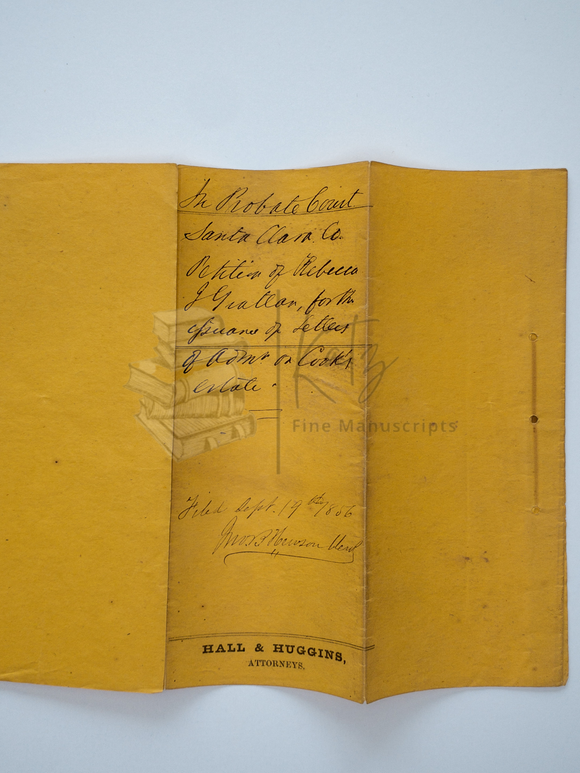 In Probate Court
Santa Clara Co.
Petition of Rebecca
J Grattan, for the
issuance of Letters
of Admr on Cook's
estate.
Katz
Fine Manuscripts
Filed Sept. 19th 1856
Clerk
HALL & HUGGINS,
ATTORNEYS.